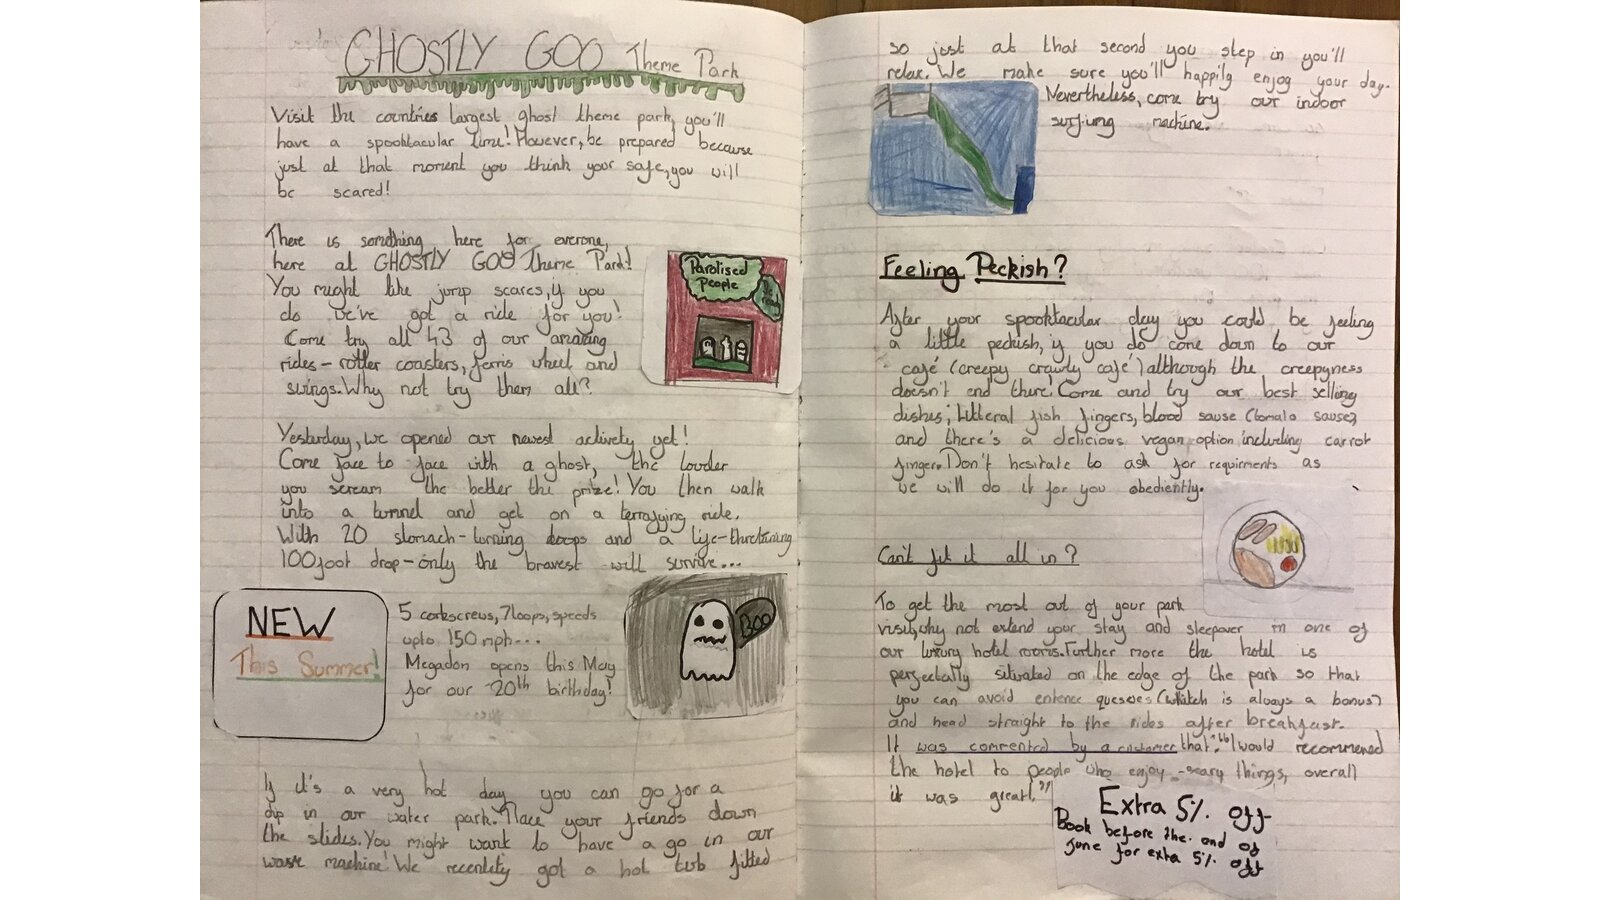 GHOSTLY GOO Theme Park
Visit the countries largest ghost theme park, you'll
have a spooktacular time! However, be prepared because
just at that moment you think your safe, you will
be scared!
There is something here for everone,
here at GHOSTLY GOO Theme Park!
You might like jump scares, if you
do we've got a ride for you!
Come try all 43 of our amazing
rides - roller coasters, ferris wheel and
swings. Why not try them all?
Paralised
People
Be
ready
Yesturday, we opened our newest activety yet!
Come face to face with a ghost, the louder
you scream the better the prize! You then walk
into a tunnel and get on a terrafying ride.
With 20 stomach-turning loops and a life-thretening
100foot drop - only the bravest will survive...
NEW
This Summer!
5 corkscrews, 7loops, speeds
upto 150 mph...
Megadon opens this May
for our 20th birthday!
BOO
If it's a very hot day you can go for a
dip in our water park. Race your friends down
the slides. You might want to have a go in our
wave machine! We recentely got a hot tub fitted
so just at that second you step in you'll
relax. We make sure you'll happily enjoy your day.
Nevertheless, come try our indoor
surfing machine.
Feeling Peckish?
After your spooktacular day you could be feeling
a little peckish, if you do come down to our
café (creepy crawly café) although the creepyness
doesn't end there! Come and try our best selling
dishes; Litteral fish fingers, blood sause (tomato sause)
and there's a delicious vegan option including carrot
fingers. Don't hesitate to ask for requirments as
we will do it for you obediently.
Can't fit it all in?
To get the most out of your park
visit, why not extend your stay and sleepover in one of
our luxury hotel rooms. Further more the hotel is
perfectally situated on the edge of the park so that
you can avoid entence queses (whitch is always a bonus)
and head straight to the rides after breakfast.
It was commented by a customer that: "I would recommened
the hotel to people who enjoy scary things, overall
it was great."
Extra 5% off
Book before the 2nd of
June for extra 5% off